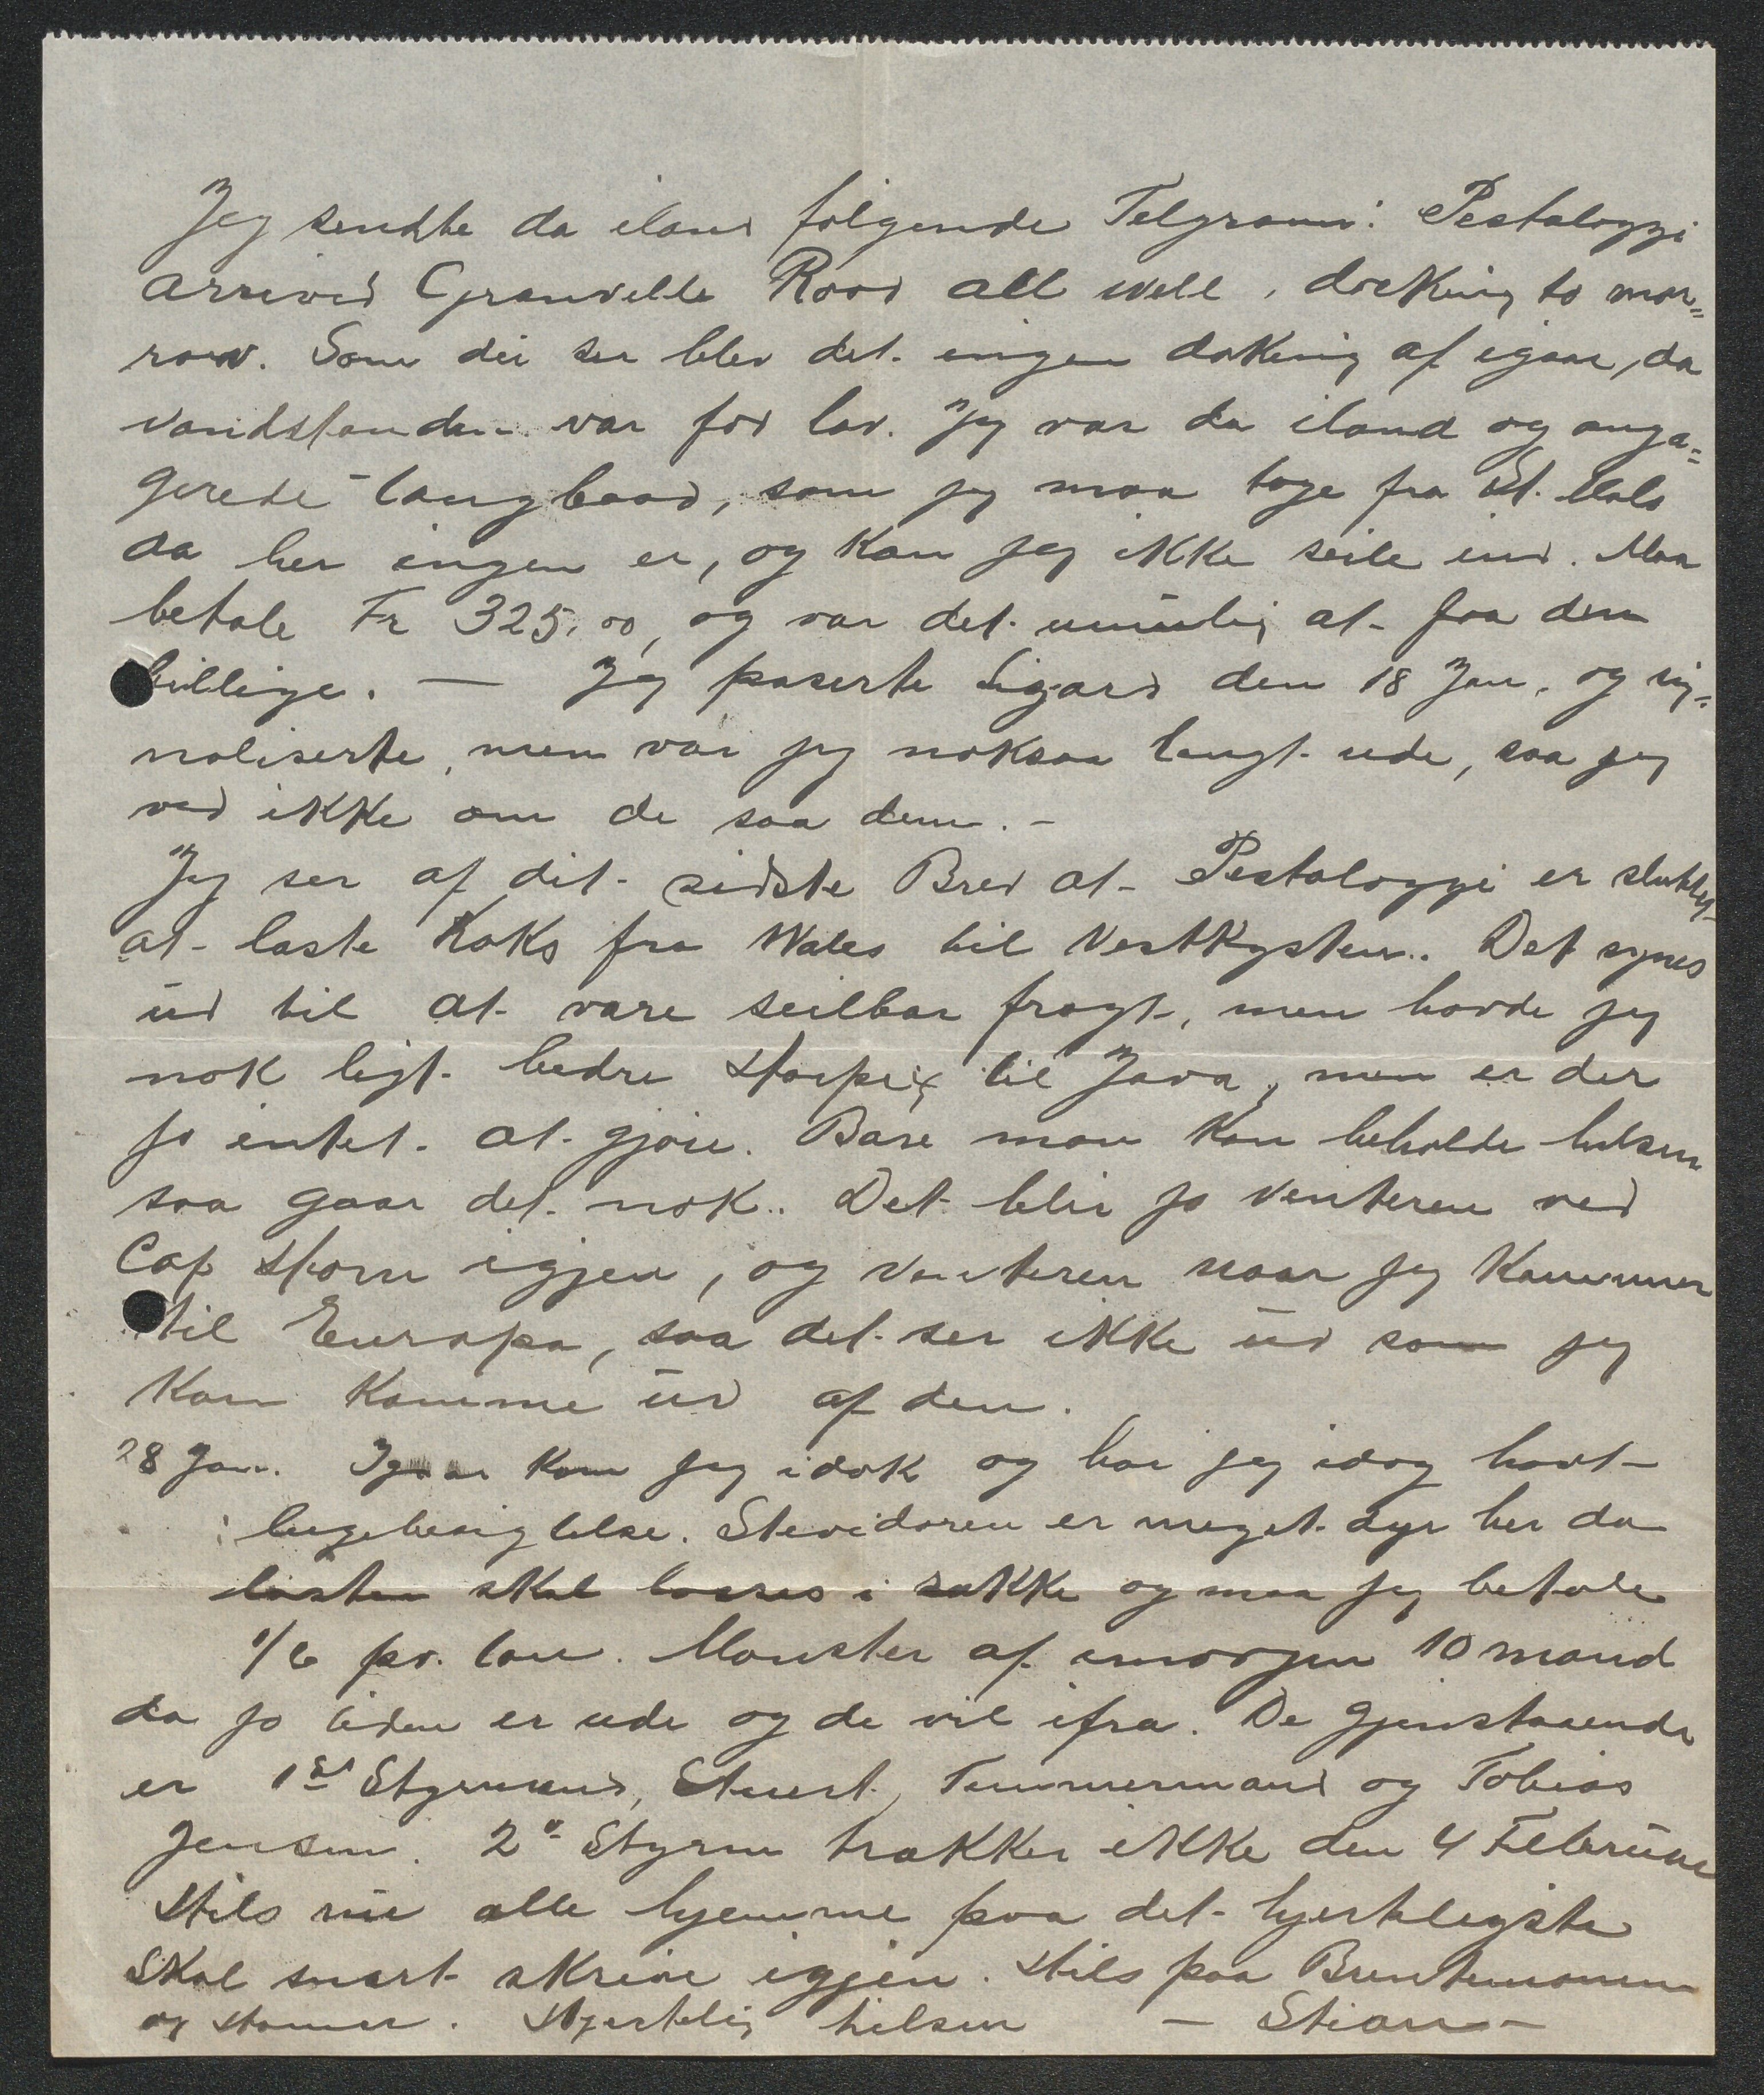 Jeg sendte da iland følgende Telgram: Pestalozzi
arrived Granville Road all well, docking to mor=
row. Som dú ser blev det ingen dokking af igaar, da
vandstanden var for lav. Jeg var da iland og anga=
gerede taugbaad, som jeg maa tage fra St. Malo
da her ingen er, og kan jeg ikke seile ind. Maa
betale Fr 325,00, og var det umúlig at faa den
billige. — Jeg paserte Lizard den 18 Jan. og sig=
naliserte, men var jeg noksaa langt ude, saa jeg
ved ikke om de saa dem. –
Jeg ser af dit sidste Brev at Pestalozzi er sluttet
at laste Koks fra Wales til Vestkysten. Det synes
úd til at være seilbar fragt, men havde jeg
nok ligt bedre Harpix til Java, men er der
jo intet at gjøre. Bare man kan beholde helsen
saa gaar det nok. Det blir jo venteren ved
Cap Horn igjen, og venteren naar jeg kommer
til Europa, saa det ser ikke úd som jeg
kan komme úd af den.
28 Jan. Igaar kom jeg i dok og har jeg idag havt
lugebesigtelse. Stevidoren er meget dyr her da
lasten skal losses i sække og maa jeg betale
1/6 pr. ton. Mønster af imorgen 10 mand
da jo tiden er ude og de vil ifra. De gjenstaaende
er 1st Styrmand, Stuert, Tømmermand og Tobias
Jensen. 2n Styrm trækker ikke den 4 Februar
Hils nú alle hjemme paa det hjerteligste
Skal snart skrive igjen. Hils paa
og Hjertelig hilsen – Stian –